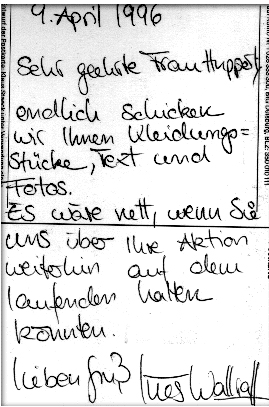 9. April 1996
Sehr geehrte Frau Huppert,
endlich schicken
wir Ihnen Kleidungs=
Stücke, Text und
Fotos.
Es wäre nett, wenn Sie
uns über Ihre Aktion
weiterhin auf dem
laufenden halten
könnten.
lieben Gruß Ines Wallraff